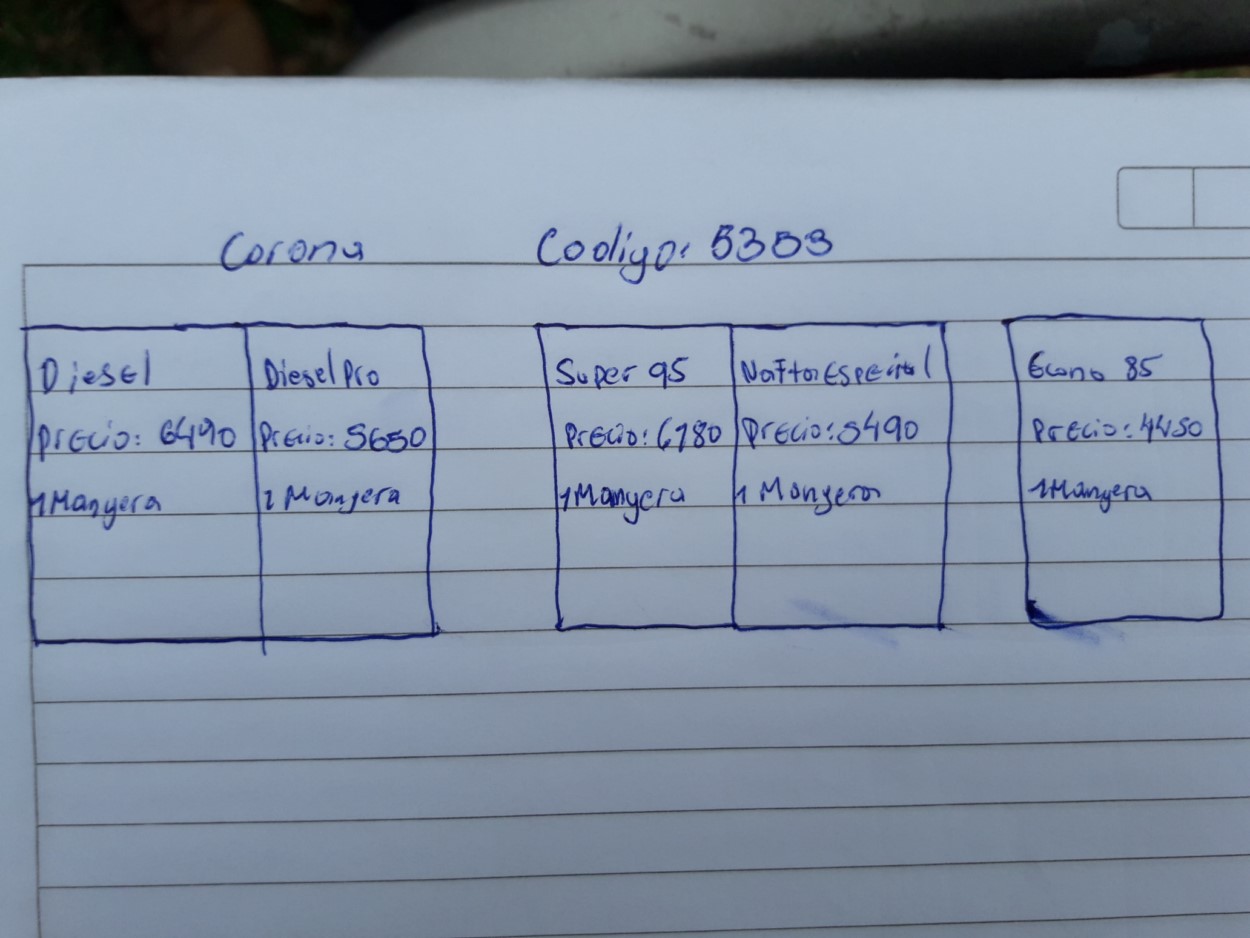 Corona
Codigo: 5353
Diesel
Precio: 6490
1 Mangera
Diesel Pro
Precio: 5650
1 Mangera
Super 95
Precio: 6180
1 Mangera
Nafta Especial
Precio: 5490
1 Mangera
Econo 85
Precio: 4450
1 Mangera